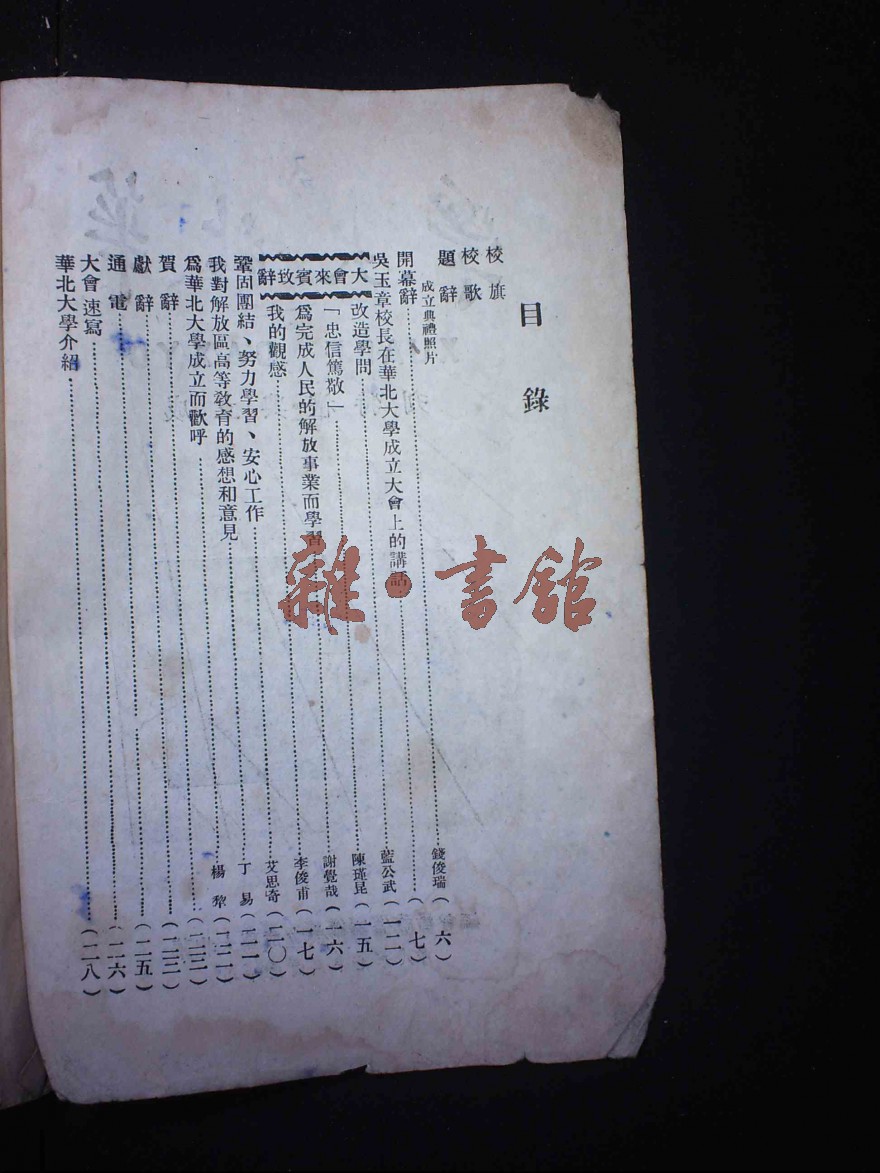 目錄
校旗
校歌
題辭
成立典禮照片
開幕辭……錢俊瑞(六)
吳玉章校長在華北大學成立大會上的講話……(七)
大會來賓致辭
改造學問……藍公武(一二)
「忠信篤敬」……陳瑾昆(一五)
爲完成人民的解放事業而學習……謝覺哉(一六)
我的觀感……李俊甫(一七)
鞏固團結、努力學習、安心工作……艾思奇(二〇)
我對解放區高等敎育的感想和意見……丁易(二一)
爲華北大學成立而歡呼……楊犂(二二)
賀辭……(二三)
獻辭……(二三)
通電……(二五)
大會速寫……(二六)
華北大學介紹……(二八)
雜·書館